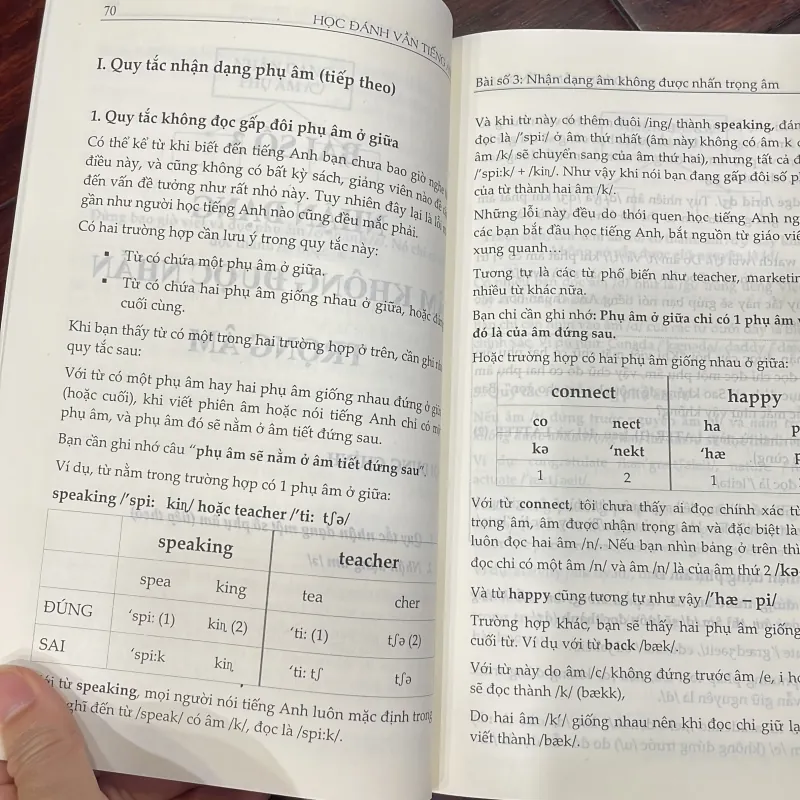 70
HỌC ĐÁNH VẦN TIẾNG
I. Quy tắc nhận dạng phụ âm (tiếp theo)
1. Quy tắc không đọc gấp đôi phụ âm ở giữa
Có thể kể từ khi biết đến tiếng Anh bạn chưa bao giờ nghe
điều này, và cũng không có bất kỳ sách, giảng viên nào đề
đến vấn đề tưởng như rất nhỏ này. Tuy nhiên đây lại là lỗi
gần như người học tiếng Anh nào cũng đều mắc phải.
Có hai trường hợp cần lưu ý trong quy tắc này:
▪ Từ có chứa một phụ âm ở giữa.
▪ Từ có chứa hai phụ âm giống nhau ở giữa, hoặc đứng
cuối cùng.
Khi bạn thấy từ có một trong hai trường hợp ở trên, cần ghi nhớ
quy tắc sau:
Với từ có một phụ âm hay hai phụ âm giống nhau đứng ở giữa
(hoặc cuối), khi viết phiên âm hoặc nói tiếng Anh chỉ có một
phụ âm, và phụ âm đó sẽ nằm ở âm tiết đứng sau.
Bạn cần ghi nhớ câu "phụ âm sẽ nằm ở âm tiết đứng sau".
Ví dụ, từ nằm trong trường hợp có 1 phụ âm ở giữa:
speaking /'spi: kiŋ/ hoặc teacher /'ti: tʃə/
speaking teacher
spea king tea cher
ĐÚNG 'spi: (1) kiŋ (2) 'ti: (1) tʃə (2)
SAI 'spi:k kiŋ 'ti: tʃ tʃə
từ speaking, mọi người nói tiếng Anh luôn mặc định trong
nghĩ đến từ /speak/ có âm /k/, đọc là /spi:k/.
Bài số 3: Nhận dạng âm không được nhấn trọng âm
Và khi từ này có thêm đuôi /ing/ thành speaking, đán
đọc là /'spi:/ ở âm thứ nhất (âm này không có âm k
âm /k/ sẽ chuyển sang của âm thứ hai), nhưng tất cả đ
/'spi:k/ + /kiŋ/. Như vậy khi nói bạn đang gấp đôi số p
của từ thành hai âm /k/.
Những lỗi này đều do thói quen học tiếng Anh ng
các bạn bắt đầu học tiếng Anh, bắt nguồn từ giáo viê
xung quanh...
Tương tự là các từ phổ biến như teacher, marketin
nhiều từ khác nữa.
Bạn chỉ cần ghi nhớ: Phụ âm ở giữa chỉ có 1 phụ âm v
đó là của âm đứng sau.
Hoặc trường hợp có hai phụ âm giống nhau ở giữa:
connect happy
co nect ha p
kə 'nekt 'hæ p
1 2 1
Với từ connect, tôi chưa thấy ai đọc chính xác từ
trọng âm, âm được nhận trọng âm và đặc biệt là
luôn đọc hai âm /n/. Nếu bạn nhìn bảng ở trên thì
đọc chỉ có một âm /n/ và âm /n/ là của âm thứ 2 /kə
Và từ happy cũng tương tự như vậy /'hæ – pi/
Trường hợp khác, bạn sẽ thấy hai phụ âm giống
cuối từ. Ví dụ với từ back /bæk/.
Với từ này do âm /c/ không đứng trước âm /e, i họ
sẽ đọc thành /k/ (bækk),
Do hai âm /k'/ giống nhau nên khi đọc chỉ giữ lạ
viết thành /bæk/.